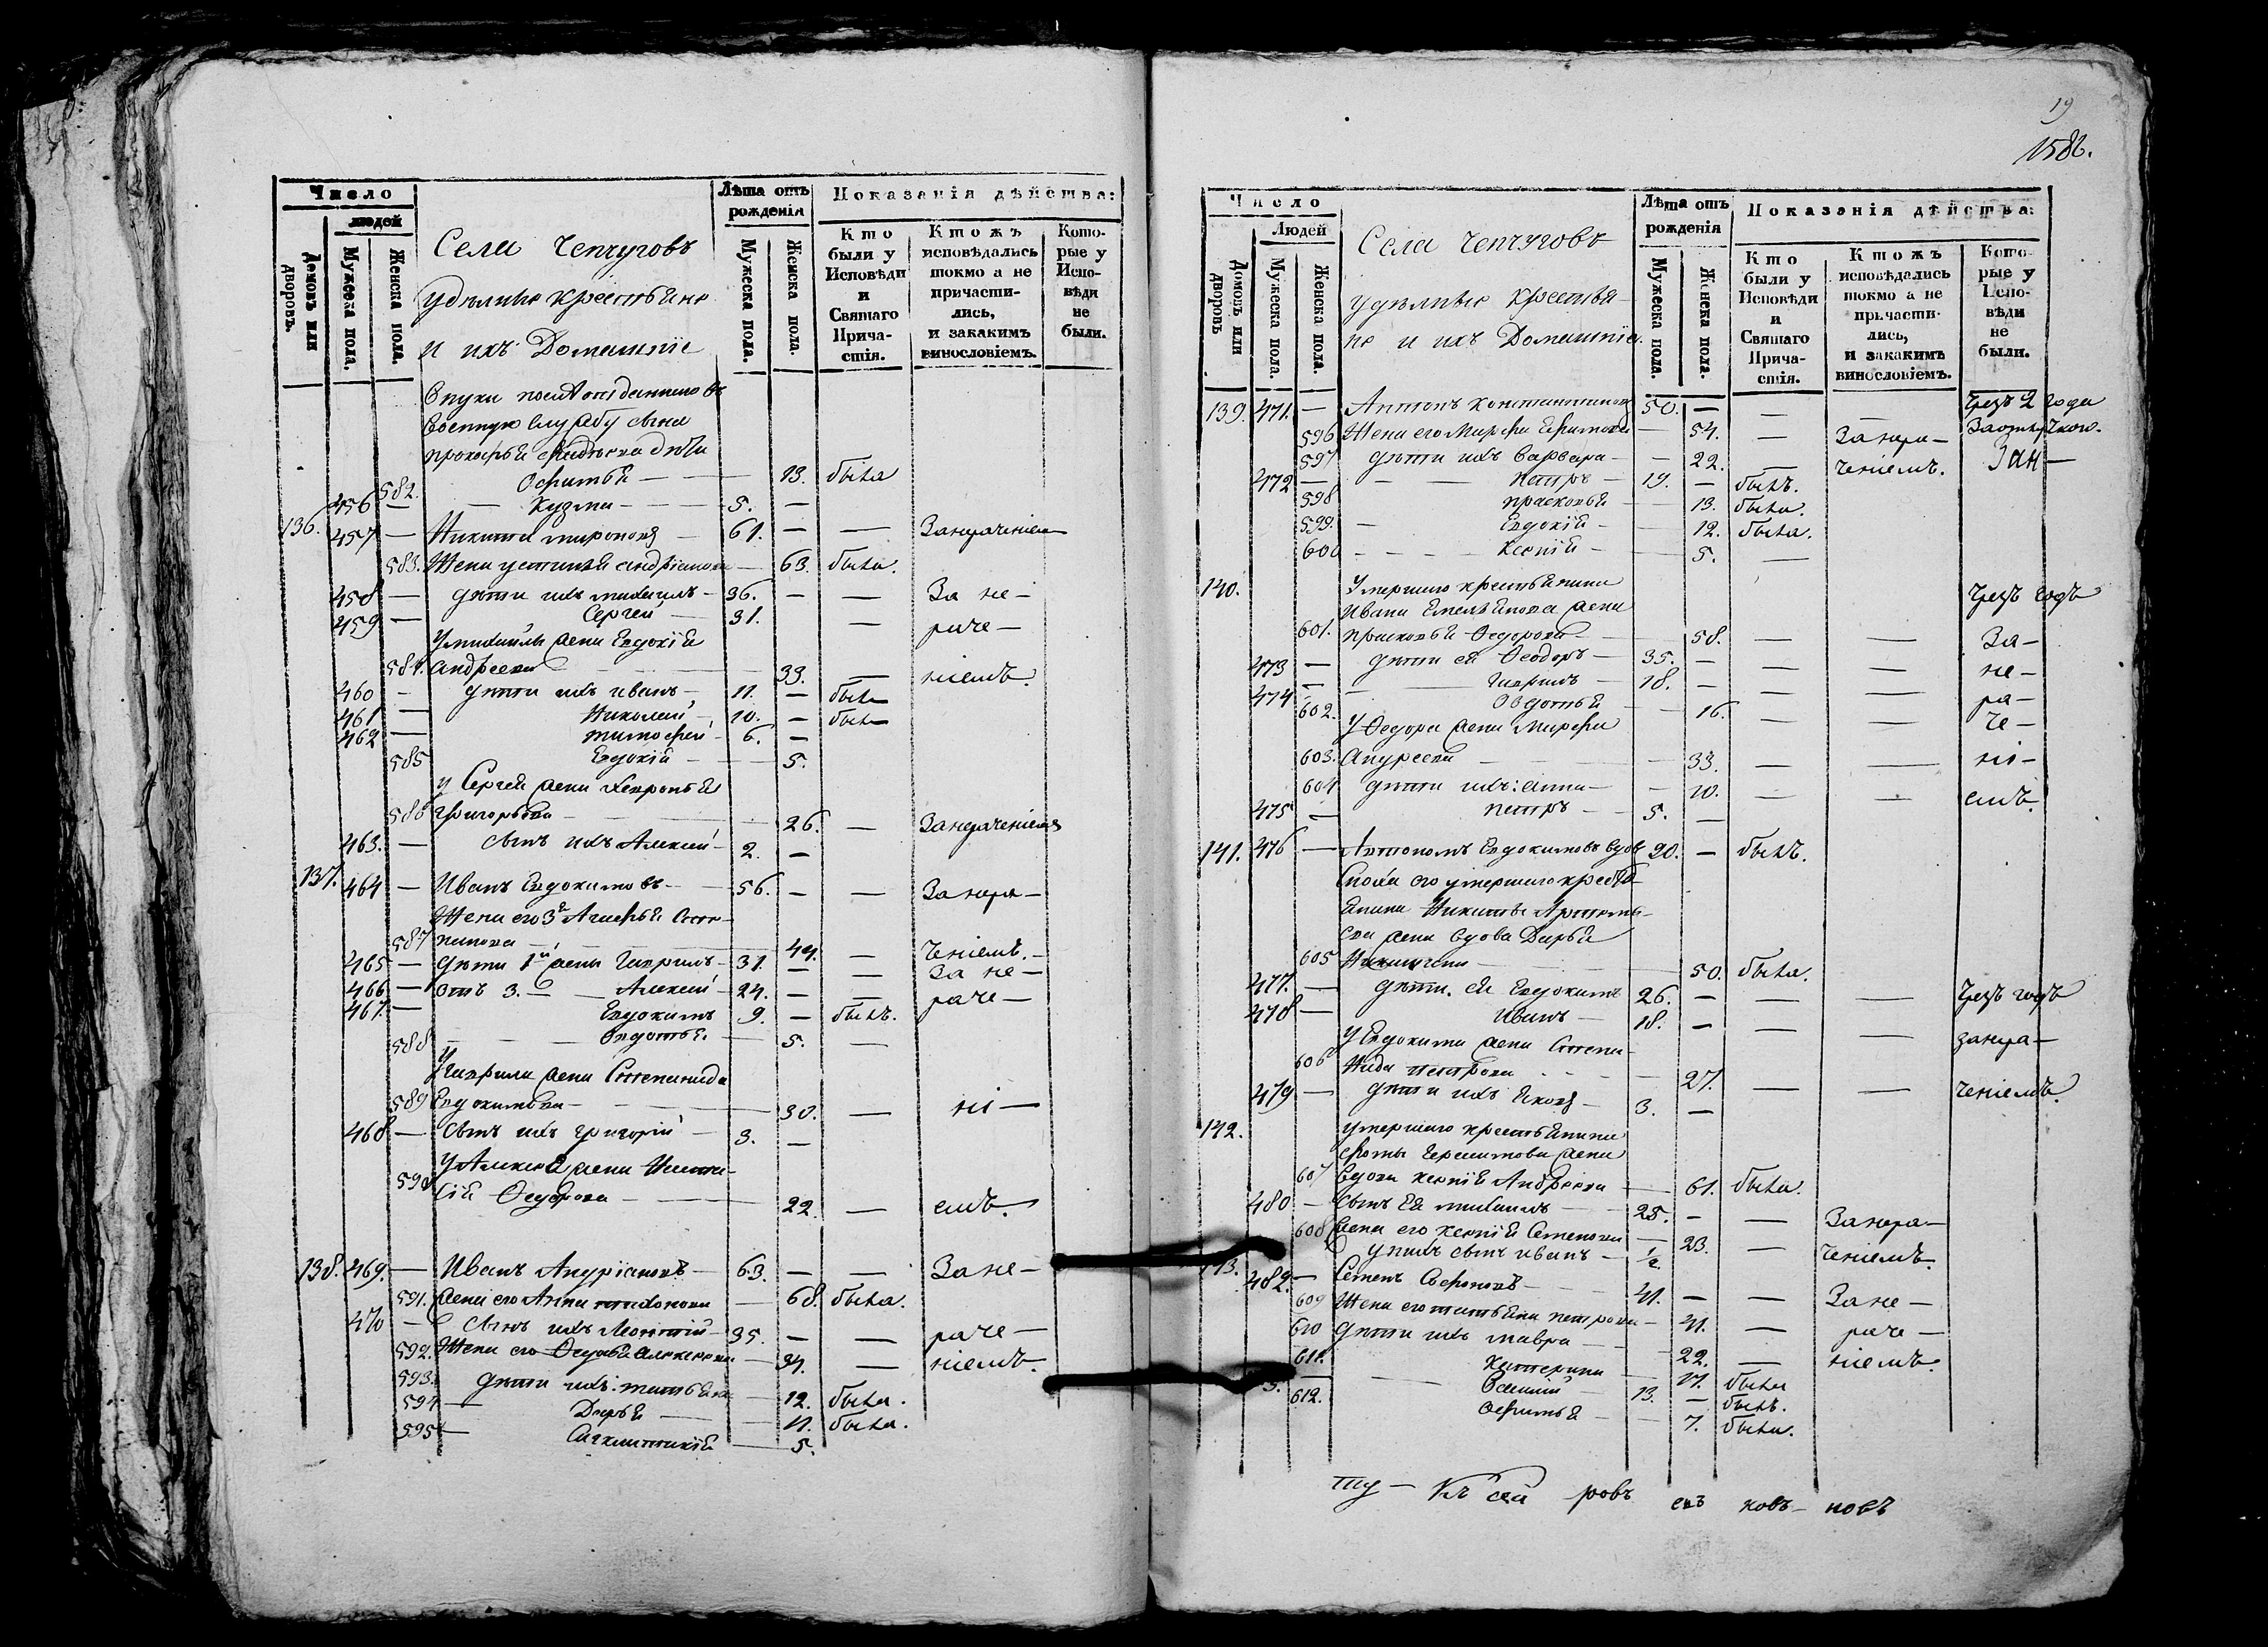 Число
людей
Домовъ или дворовъ.
Мужеска пола.
Женска пола.
Села Чепчуговъ
удѣльные крестьяне
и ихъ Домашніе
Лѣта отъ рожденія
Мужеска пола.
Женска пола.
Показанія дѣйства:
Кто были у Исповѣди и Святаго Причастія.
Ктожъ исповѣдались токмо а не причастились, и закакимъ винословіемъ.
Которые у Исповѣди не были.
военную службу сына
582. Ѳофимья — 13. была
456 — Кузма — 5. —
136. 457 — Никита Мироновъ — 61. — — Занерачением
583. Жена Устинья Андріанова — 63. была.
458 — дѣти ихъ Михаилъ — 36. — — За не —
459 — Сергей — 31. — раче —
У Михайлы жена Евдокія
584. Андреева — 33. — ніемъ.
460 — дѣти ихъ Иванъ — 11. — былъ
461 — Николай — 10. — былъ
462 — Тимофей — 6. —
585 Евдокія — 5.
у Сергея жена Хевронья
586 Григорьева — 26. — Занерачением
463. — сынъ ихъ Алексей — 2. —
137. 464 — Иванъ Евдокимовъ — 56. — — Занера —
Жена его 3я Агафья Степ—
587 панова — 44. — ченіемъ. —
465 — дѣти 1й жены Гаврилъ — 31. — — За не —
466 — отъ 3. — Алексей — 24. — — раче —
467. — Евдокимъ 9. — былъ.
588 — Авдотья. — 5. —
У Гаврилы жена Степанида
589 Евдокимова — 30. — ні —
468 — сынъ ихъ Григорій — 3. —
У Алексея жена Наста—
590 сія Ѳедорова — 22. — емъ.
138. 469. — Иванъ Андріановъ — 63. — — За не —
591. жена его Анна Тихонова — 68. была.
470 — сынъ ихъ Леонтій — 35. — — раче —
592. Жена его Ѳедосья Алексеева — 34. — ніемъ.
593. дѣти ихъ: Татьяна — 12. была.
594 — Дарья — 11. была.
595 — Синклитикія — 5.
19
1586.
Число
Людей
Домовъ или дворовъ
Мужеска пола.
Женска пола.
Села Чепчуговъ
удѣльные крестья—
не и ихъ Домашніе.
Лѣта отъ рожденія
Мужеска пола.
Женска пола.
Показанія дѣйства:
Кто были у Исповѣди и Святаго Причастія.
Ктожъ исповѣдались токмо а не причастились, и закакимъ винословіемъ.
Которые у Исповѣди не были.
139. 471. — Антонъ Константиновъ 50. — — — Чрезъ 2 года
596 Жена его Марфа Ефимова — 54. — Занера —
597 дѣти ихъ Варвара — — 22. — ченіемъ.
472 — — Петръ — 19. — былъ.
598 Прасковья — 13. была.
599. — Евдокія — 12. была.
600 — Ксенія — 5. —
140. Умершаго крестьянина
Ивана Емельянова жена Чрезъ годъ
601. Прасковья Ѳедорова — 58. — — За —
473 — дѣти ея Ѳеодоръ — 35. — — — не —
474 — Гаврилъ — 18. — — — ра —
602. Авдотья — 16. — — че —
У Ѳедора жена Марфа
603. Андреева — 33. — — ні —
604 дѣти ихъ: Анна — — 10. — — емъ.
475 — Петръ — 5. —
141. 476 — Артономъ Евдокимовъ вдов 20. — былъ.
Сноха его умершаго кресть
янина Никиты Артоно—
ва жена вдова Дарья
605 — 50. была.
477. — дѣти. ея Евдокимъ 26. — — — Чрезъ годъ
478 — Иванъ — 18. — — — занера —
У Евдокима жена Степа—
606 нида Петрова — 27. — — ченіемъ.
479 — дѣти ихъ Яковъ — 3. —
142. Умершаго крестьянина
жена
607 вдова Ксенія Андреева — 61. была.
480 — сынъ ея Михаилъ — 25. — — Занера —
608 жена его Ксенія Семенова — 23. — ченіемъ.
у нихъ сынъ Иванъ — 1/2
143. 482. — Семенъ Сафоновъ — 41. — — За не —
609 Жена его Татьяна Петрова — 41. — раче —
610 дѣти ихъ Мавра — 22. — ніемъ.
611. Катерина — 17. была
13. — былъ.
612. Ѳефимья — — 7. была.
ту — кл сей ровъ евъ ковъ — новъ